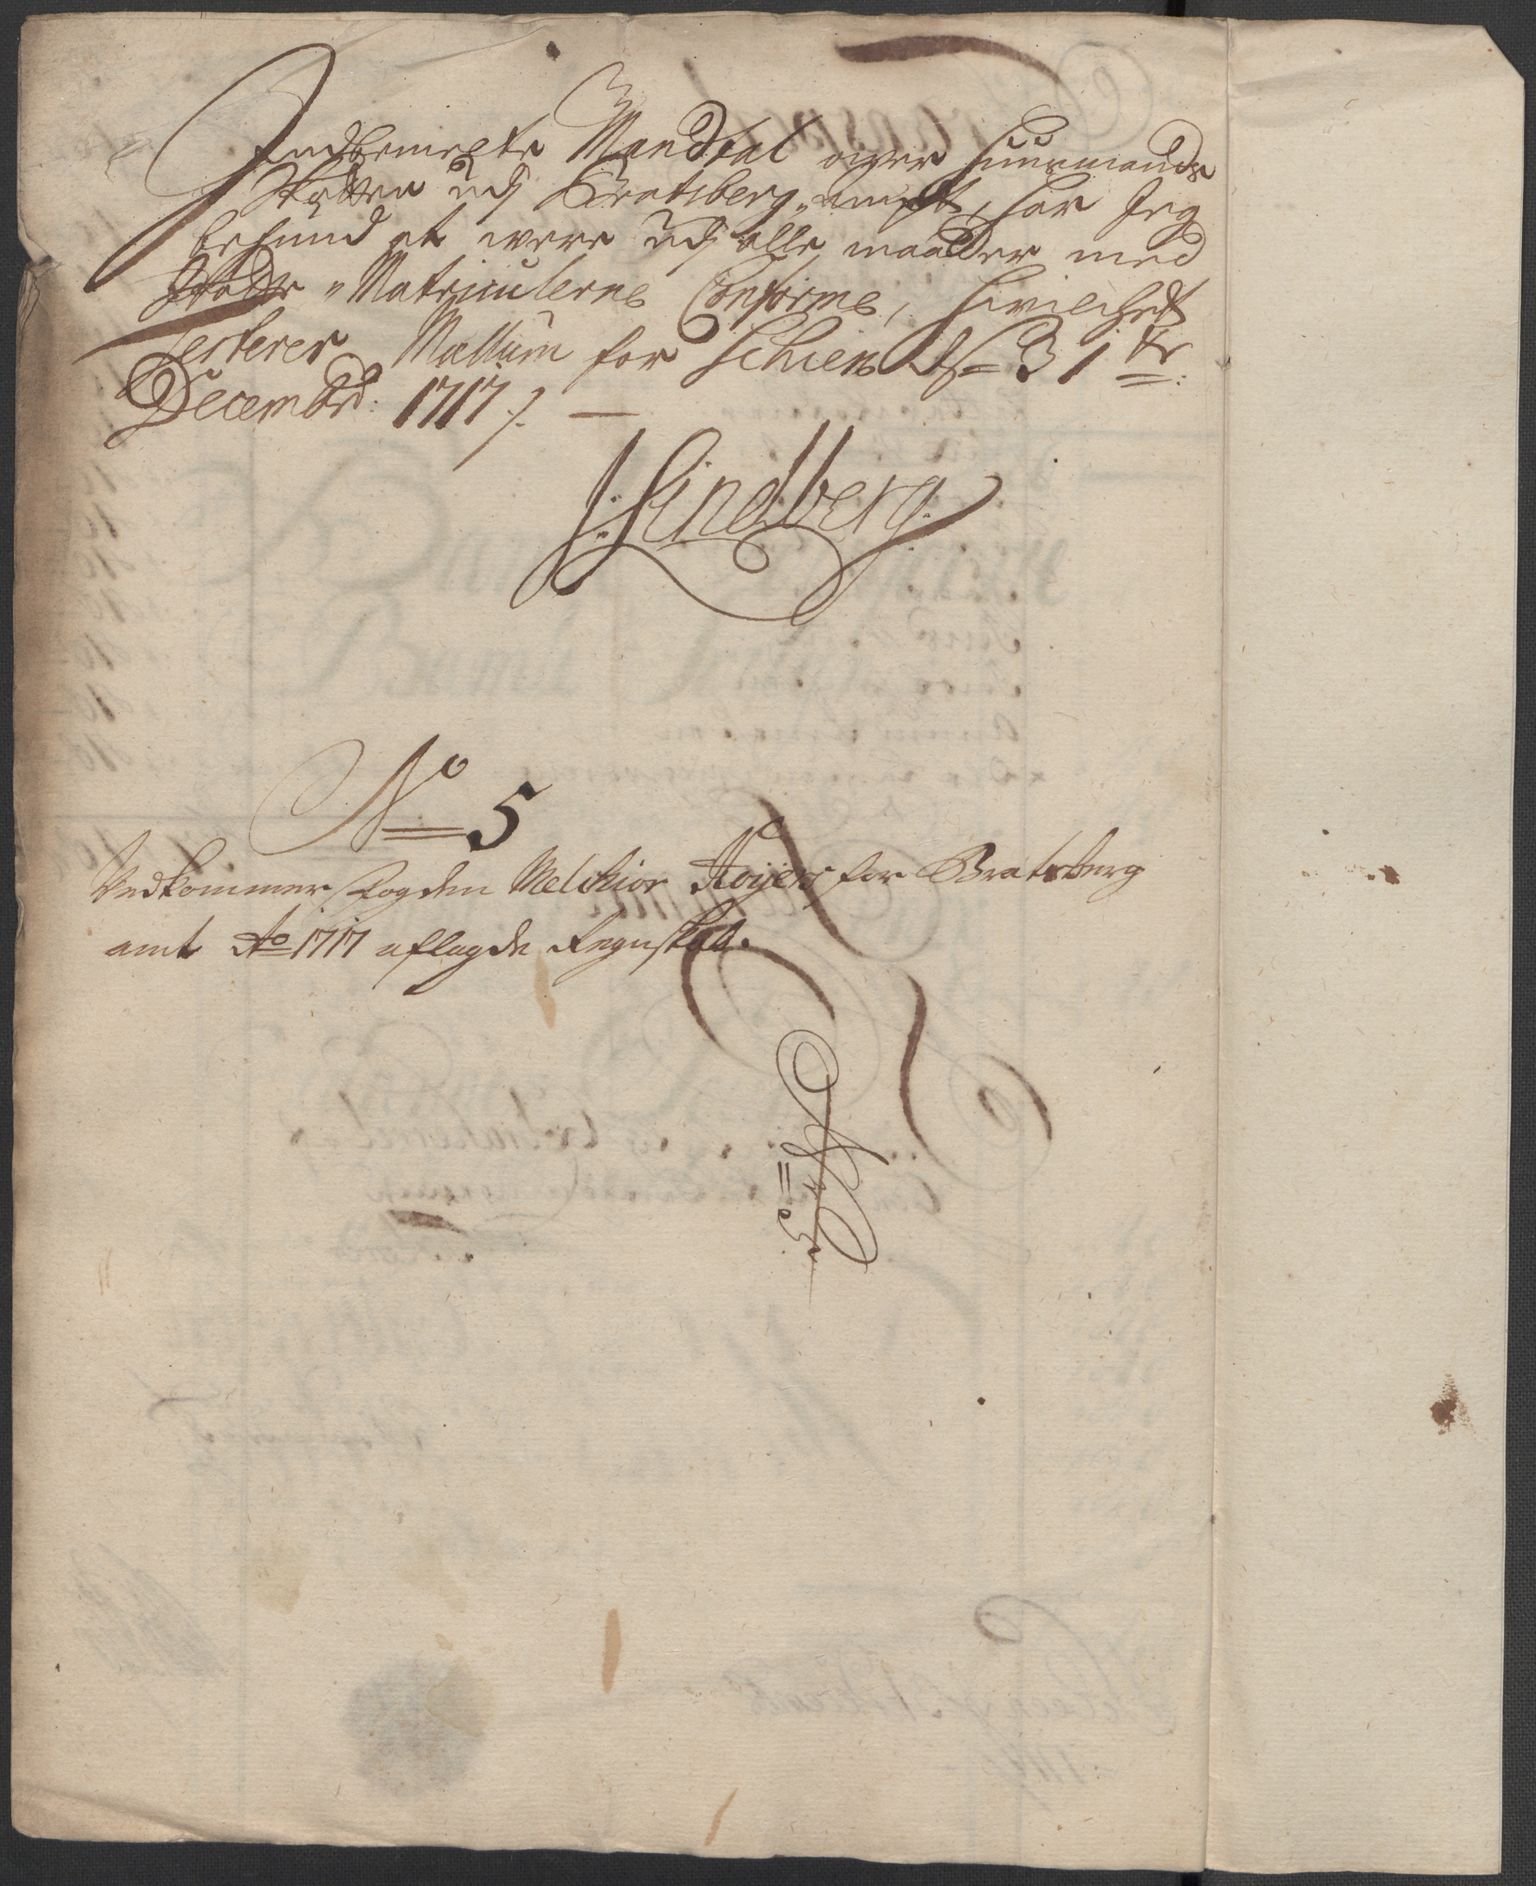 Indbemelte Mandtal over huusmands
Skatten udj Bratsberg ampt, har Jeg
befund at were udj alle maader med
Stads Matriculerne Conforme, hvilchet
testerer Mællum for Schien d= 31te
Decembr: 1717 /.
J: Lindberg.
No 5
Vedkommer Fogden Melchior Røyers for Bratsberg
amt Ao 1717 aflagde Regnskab.